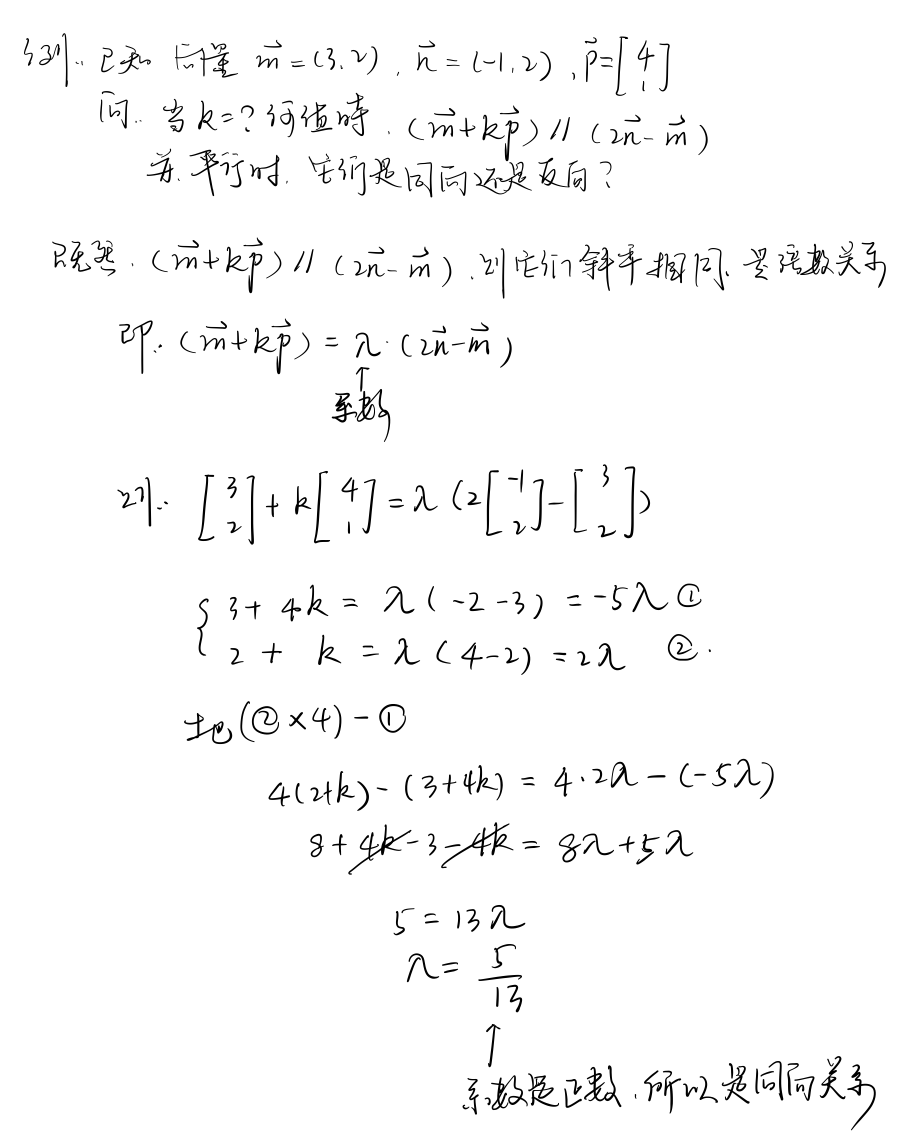 例:. 已知 向量 m⃗=(3.2), n⃗=(-1,2), p⃗=[4 1]
问:. 当k=?何值時. (m⃗+kp⃗)//(2n⃗-m⃗)
并. 平行时. 它们是同向还是反向?
既然. (m⃗+kp⃗)//(2n⃗-m⃗). 则它们斜率相同. 是倍数关系
即:. (m⃗+kp⃗)=λ·(2n⃗-m⃗)
↑
系数
则:. [3 2]+k[4 1]=λ(2[-1 2]-[3 2])
{3+4k=λ(-2-3)=-5λ ①
2+k=λ(4-2)=2λ ②.
把(②×4)-①
4(2+k)-(3+4k)=4·2λ-(-5λ)
8+4k-3-4k=8λ+5λ
5=13λ
λ=5/13
↑
系数是正数.所以是同向关系